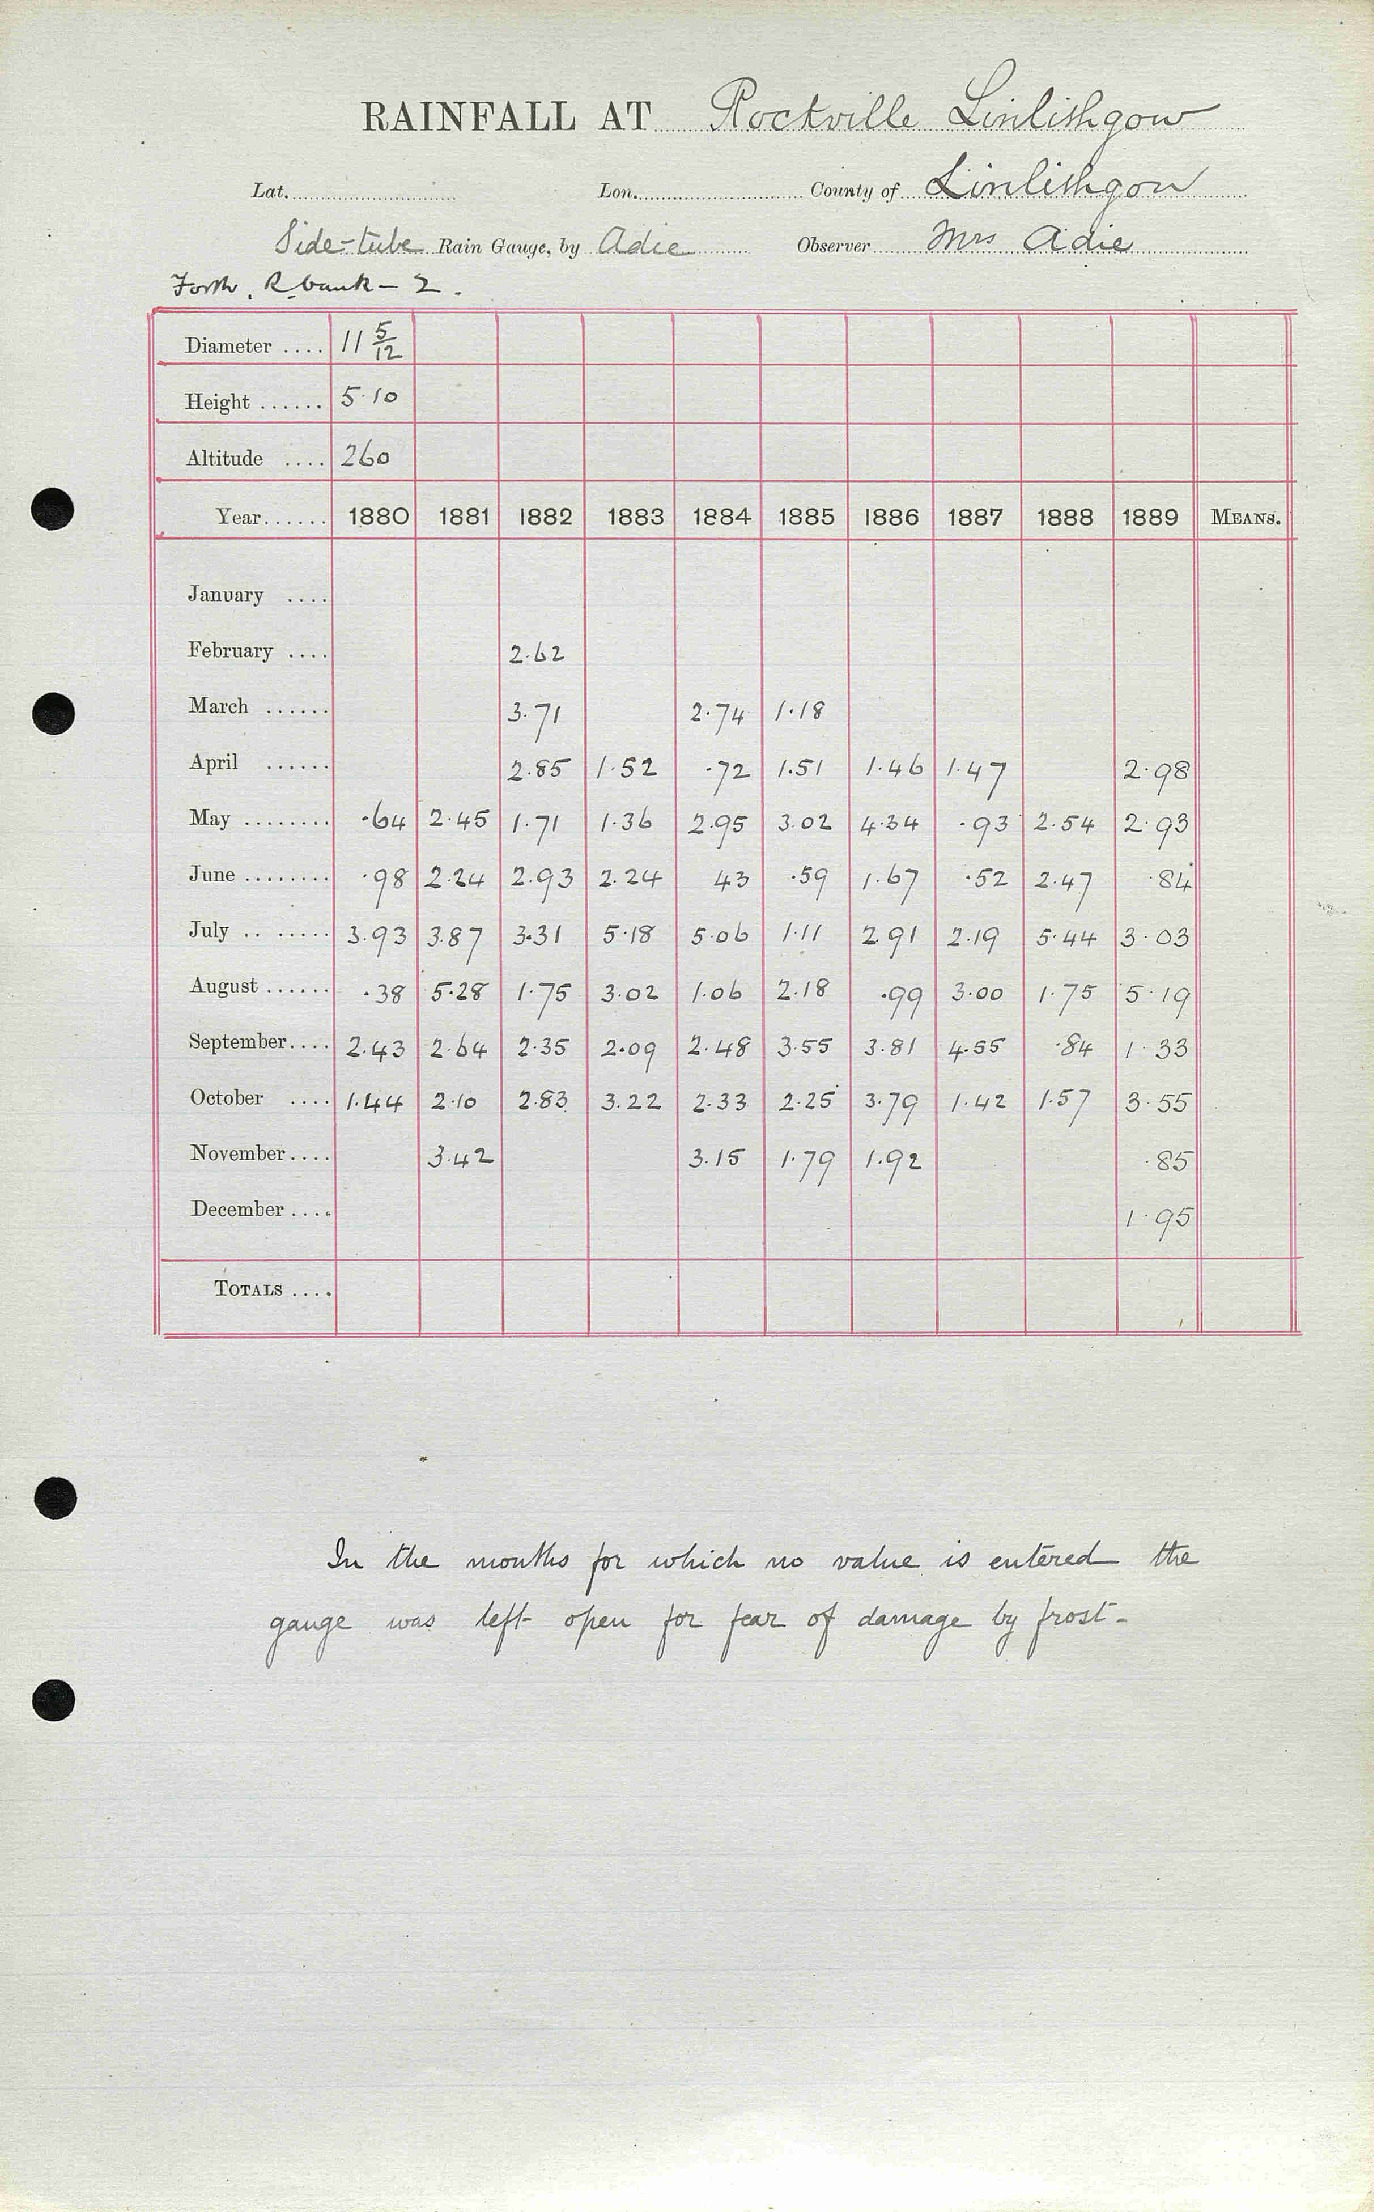 RAINFALL AT Rockville Linlithgow
Lat. Lon. County of Linlithgow
Side-tube Rain Gauge, by Adie Observer Mrs Adie
Forth. R. bank - 2.
Diameter .... 11 5/12
Height ...... 5.10
Altitude .... 260
Year...... 1880 1881 1882 1883 1884 1885 1886 1887 1888 1889 MEANS.
January ....
February .... 2.62
March ...... 3.71 2.74 1.18
April ...... 2.85 1.52 .72 1.51 1.46 1.47 2.98
May ........ .64 2.45 1.71 1.36 2.95 3.02 4.34 .93 2.54 2.93
June ........ .98 2.24 2.93 2.24 43 .59 1.67 .52 2.47 .84
July .. ..... 3.93 3.87 3.31 5.18 5.06 1.11 2.91 2.19 5.44 3.03
August ...... .38 5.28 1.75 3.02 1.06 2.18 .99 3.00 1.75 5.19
September.... 2.43 2.64 2.35 2.09 2.48 3.55 3.81 4.55 .84 1.33
October .... 1.44 2.10 2.83 3.22 2.33 2.25 3.79 1.42 1.57 3.55
November.... 3.42 3.15 1.79 1.92 .85
December .... 1.95
TOTALS ....
In the months for which no value is entered the
gauge was left open for fear of damage by frost-